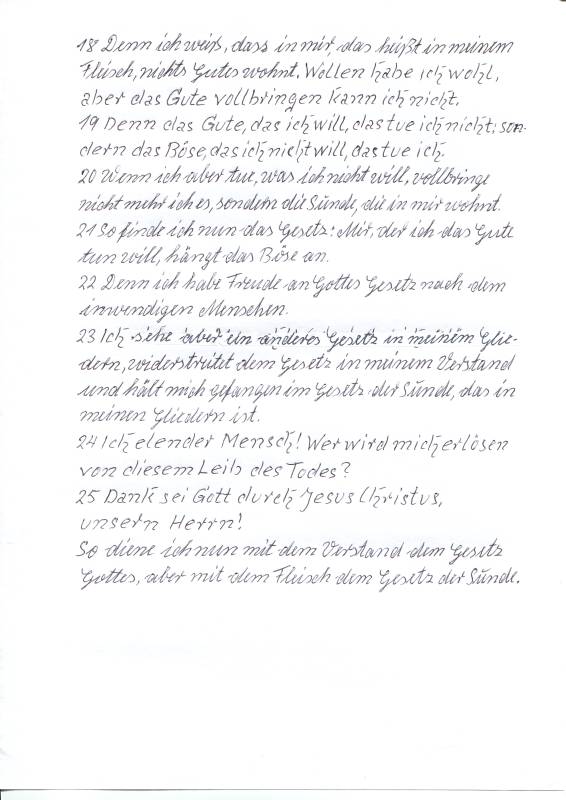 18 Denn ich weiß, dass in mir, das heißt in meinem
Fleisch, nichts Gutes wohnt. Wollen habe ich wohl,
aber das Gute vollbringen kann ich nicht.
19 Denn das Gute, das ich will, das tue ich nicht; son-
dern das Böse, das ich nicht will, das tue ich.
20 Wenn ich aber tue, was ich nicht will, vollbringe
nicht mehr ich es, sondern die Sünde, die in mir wohnt.
21 So finde ich nun das Gesetz: Mir, der ich das Gute
tun will, hängt das Böse an.
22 Denn ich habe Freude an Gottes Gesetz nach dem
inwendigen Menschen.
23 Ich sehe aber ein anderes Gesetz in meinem Glie-
dern, widerstreitet dem Gesetz in meinem Verstand
und hält mich gefangen im Gesetz der Sünde, das in
meinen Gliedern ist.
24 Ich elender Mensch! Wer wird mich erlösen
von diesem Leib des Todes?
25 Dank sei Gott durch Jesus Christus,
unsern Herrn!
So diene ich nun mit dem Verstand dem Gesetz
Gottes, aber mit dem Fleisch dem Gesetz der Sünde.